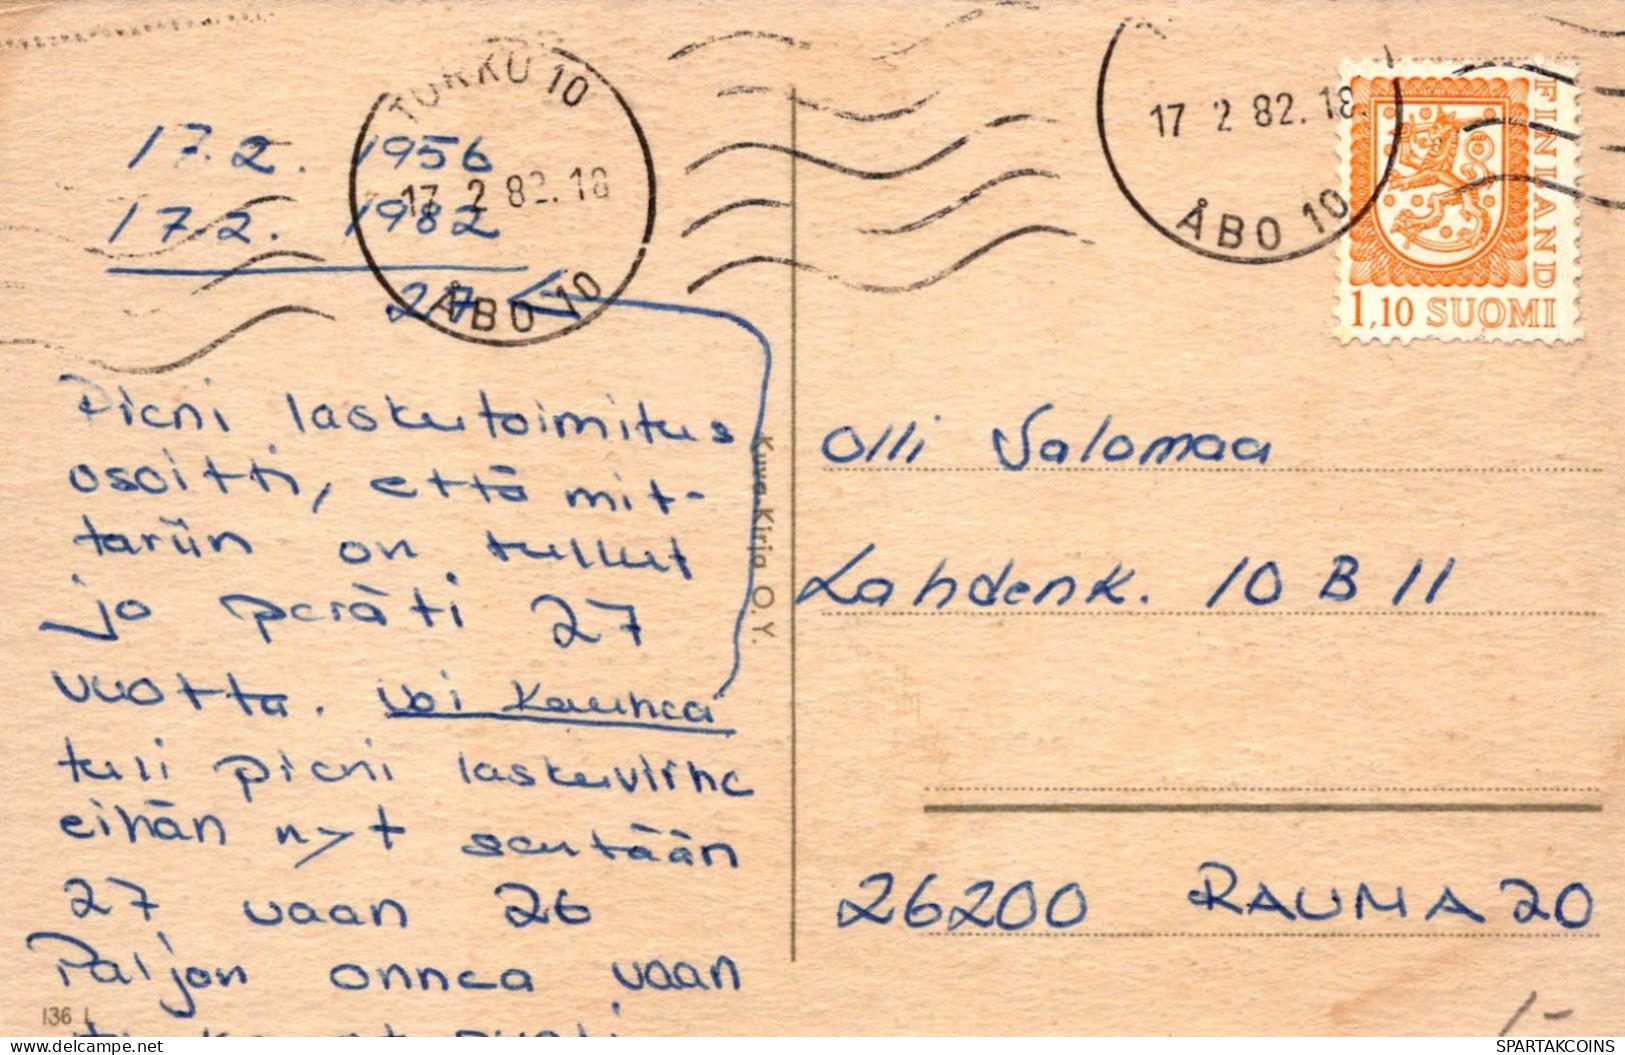 TURKU 10
17 2 82.18
ÅBO 10
17 2 82.18
ÅBO 10
FINLAND
1,10 SUOMI
17.2. 1956
17.2. 1982
27
Pieni laskutoimitus
osoitti, että mit-
tariin on tullut
jo peräti 27
vuotta. Voi kauhea
tuli pieni laskuvirhe
eihän nyt sentään
27 vaan 26
Paljon onnea vaan
Kuva-Kirja O. Y.
Olli Salomaa
Lahdenk. 10 B 11
26200 RAUMA 20
136 L
1-
SPARTAKCOINS
delcampe.net